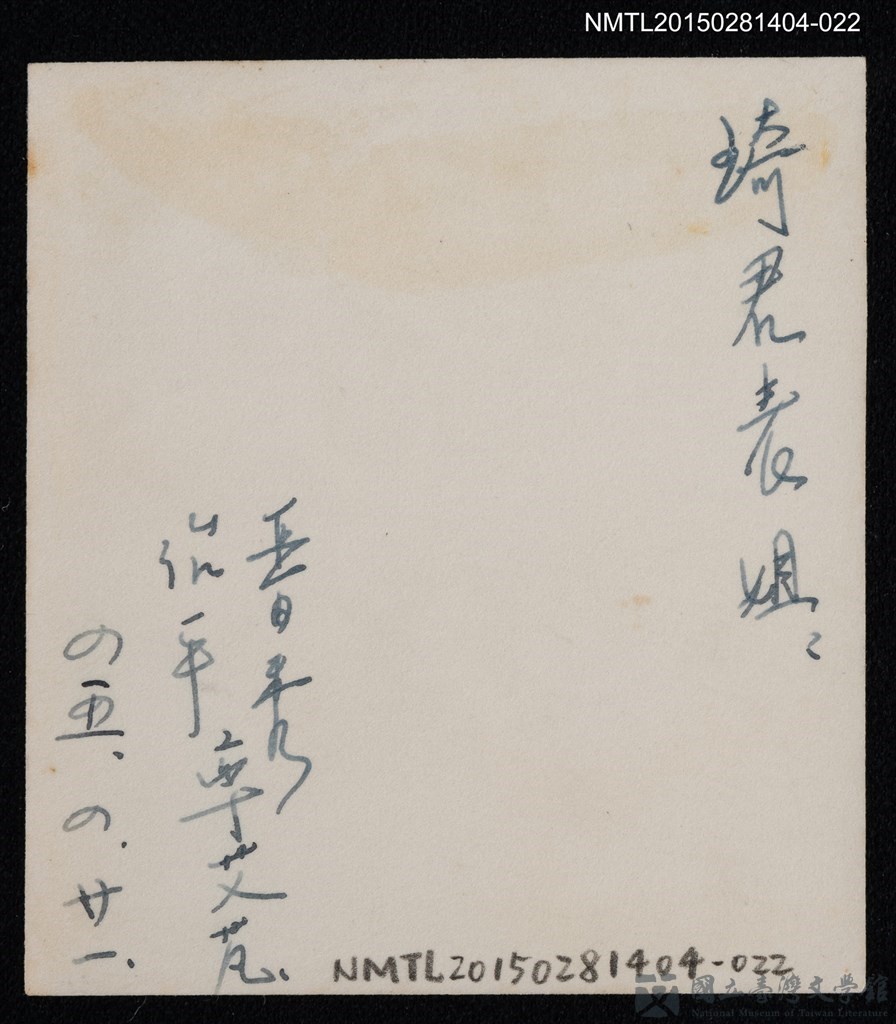 NMTL20150281404-022
琦君表姐
秀
平
艾
四五、四.廿一.
NMTL20150281404-022
國立臺灣文學館
National Museum of Taiwan Literature